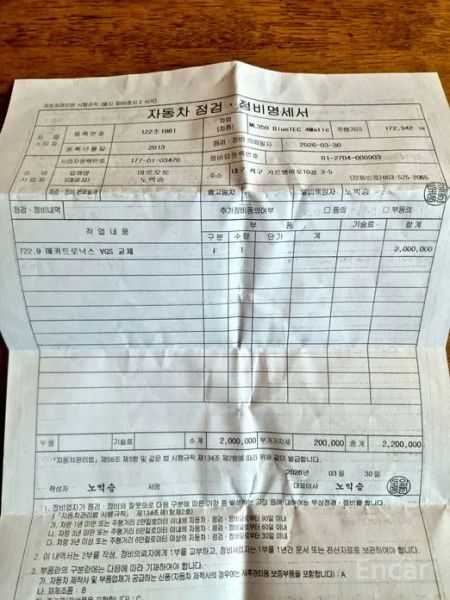 자동차관리법 시행규칙 [별지 제89호의 2 서식]
자동차 점검 · 정비명세서
등록번호 122조1981 차명 (차종) ML350 BlueTEC 4Matic 주행거리 172,342 ㎞
등록년월일 2013 점검 · 정비 의뢰일자 2026-03-30
사업자등록번호 177-01-03420 정비업등록번호 01-2704-000903
업체명 (대표자) 마르오토 노익승 주소 대구 서구 (전화번호) 053-525-2065
출고일자 노익승
점검 · 정비내역 추가정비동의여부 □ 동의 □ 부동의
작 업 내 용 부 품 기술료 합계
구분 수량 단가 계
722.9 메카트로닉스 VGS 교체 F 1 2,000,000
부품 기술료 소계 2,000,000 부가가치세 200,000 총계 2,200,000
「자동차관리법」 제58조 제5항 및 같은 법 시행규칙 제134조 제2항에 따라 위와 같이 발급합니다.
2026 년 03 월 30 일
작성자 노익승 서명 대표이사 노익승
1. 정비업자가 점검 · 정비의 잘못으로 다음 구분에 따른 기간 중 발생하는 고장 등에 대하여는 무상점검 · 정비를 합니다.
(「자동차관리법 시행규칙」 제134조제1항제2호)
가. 차령 1년 미만 또는 주행거리 2만킬로미터 이내의 자동차 : 점검 · 정비일로부터 90일 이내
나. 차령 3년 미만 또는 주행거리 6만킬로미터 이내의 자동차 : 점검 · 정비일로부터 60일 이내
다. 차령 3년 이상 또는 주행거리 6만킬로미터 이상의 자동차 : 점검 · 정비일로부터 30일 이내
2. 이 내역서는 2부를 작성, 정비의뢰자에게 1부를 교부하고, 정비사업자는 1부를 1년간 문서 또는 전산자료로 보관하여야 합니다.
3. 부품란의 구분란에는 다음에 따라 기재하여야 합니다.
가. 자동차 제작사 및 부품업체가 공급하는 신품(자동차 제작사의 경우에는 사후관리용 보증부품을 포함합니다) : A
나. 재제조품 : B
Encar